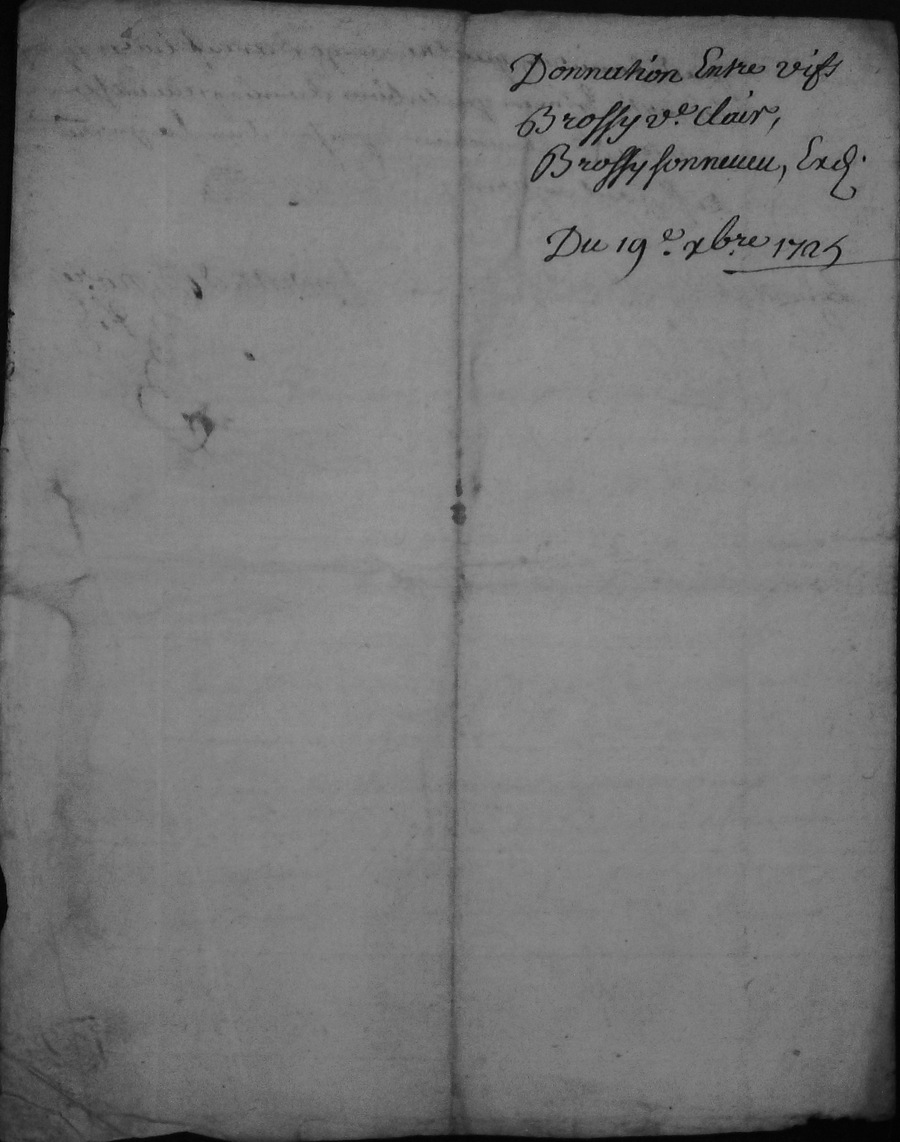 Donnation Entre vifs
Brossy v.e Clair,
Brossy sonneueu, Exd.
Du 19.e xbre 1725